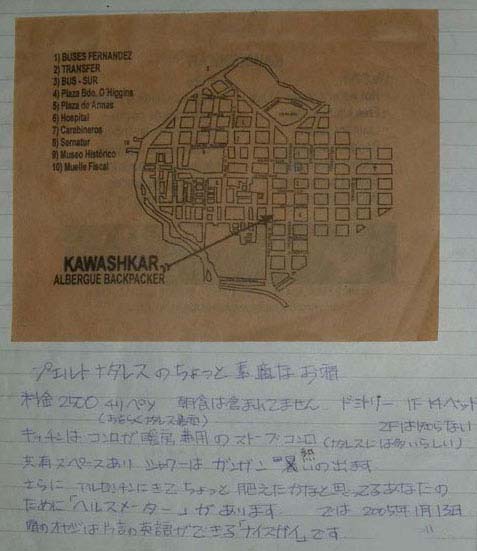 1) BUSES FERNANDEZ
2) TRANSFER
3) BUS - SUR
4) Plaza Bdo. O'Higgins
5) Plaza de Armas
6) Hospital
7) Carabineros
8) Sernatur
9) Museo Histórico
10) Muelle Fiscal
KAWASHKAR
ALBERGUE BACKPACKER
プエルトナタレスのちょっと素敵なお宿
料金 2500 チリペソ 朝食は含まれてません ドミトリー 1F 14ベット
(おそらくナタレス最安) 2Fは知らない
キッチンはコンロが暖房兼用のストーブコンロ (ナタレスには多いらしい)
共有スペースあり シャワーはガンガン 熱いの出ます
さらに アルゼンチンにきてちょっと肥えたかなと思ってるあなたの
ために「ヘルスメーター」があります では 2005年1月13日
宿のオヤジは片言の英語ができる「ナイスガイ」です